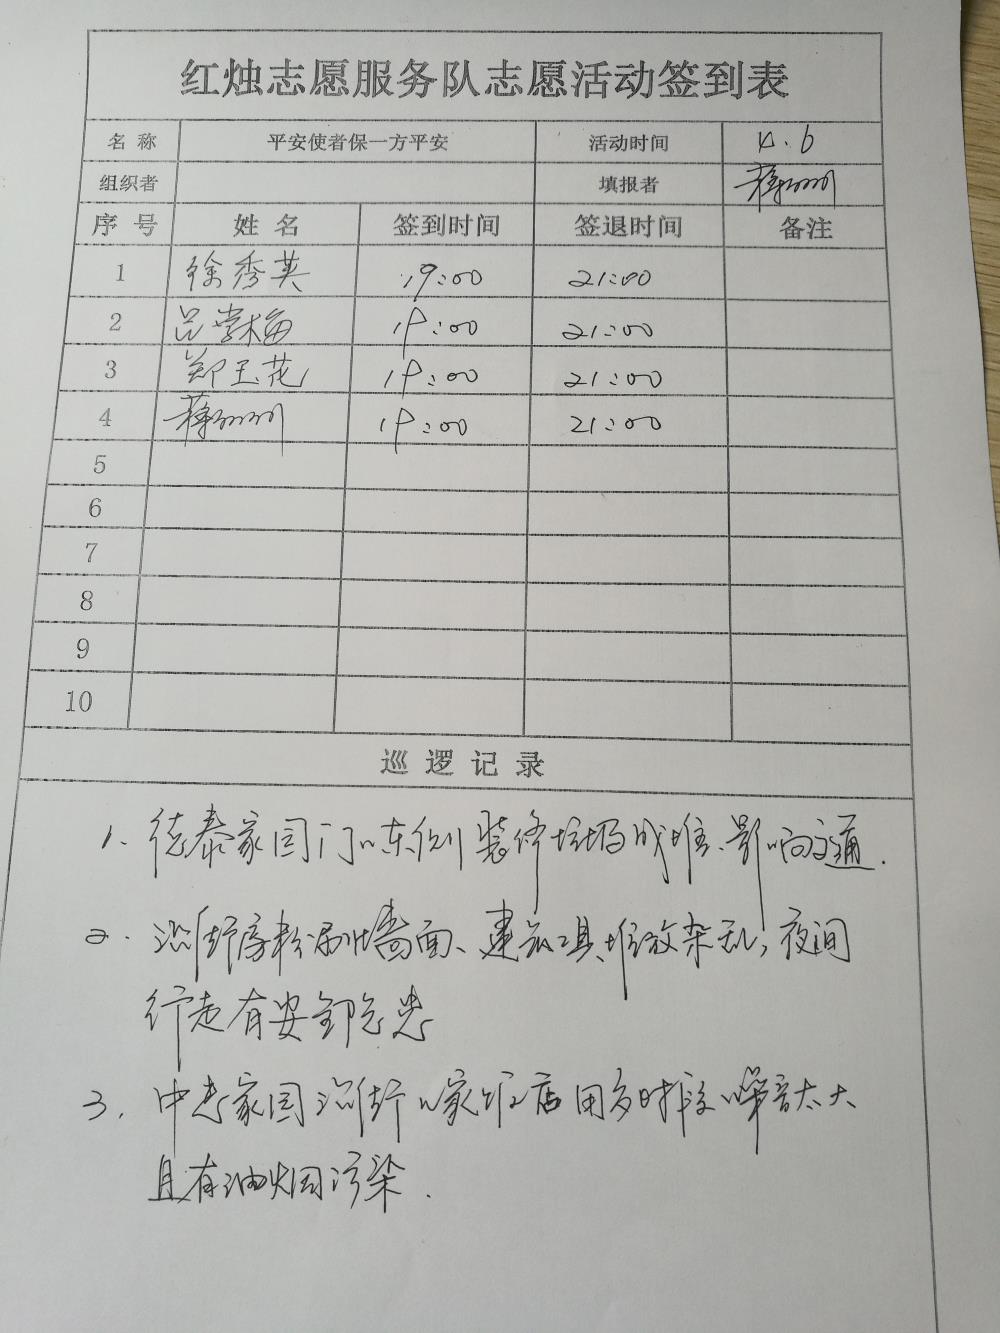 红烛志愿服务队志愿活动签到表
名称 平安使者保一方平安 活动时间 4.6
组织者 填报者
序号 姓名 签到时间 签退时间 备注
1 徐秀英 19:00 21:00
2 吕学梅 19:00 21:00
3 郑玉花 19:00 21:00
4 19:00 21:00
5
6
7
8
9
10
巡逻记录
1. 德泰家园门口东侧装修垃圾成堆、影响交通.
2. 沿街房粉刷墙面、建筑工具堆放杂乱, 夜间
行走有安全隐患
3. 中惠家园沿街几家饭店用多时段噪音太大
且有油烟污染.